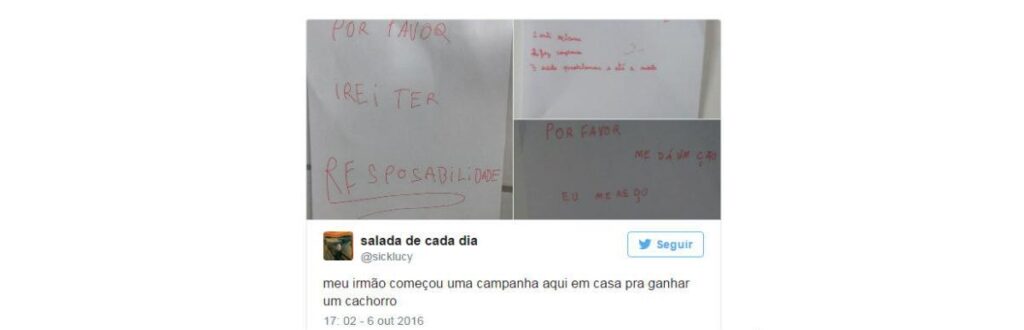 POR FAVOR
IREI TER
RESPOSABILIDADE
POR FAVOR
ME DÁ UM ÇÃO
EU MEREÇO
salada de cada dia
@sicklucy
Seguir
meu irmão começou uma campanha aqui em casa pra ganhar
um cachorro
17: 02 - 6 out 2016